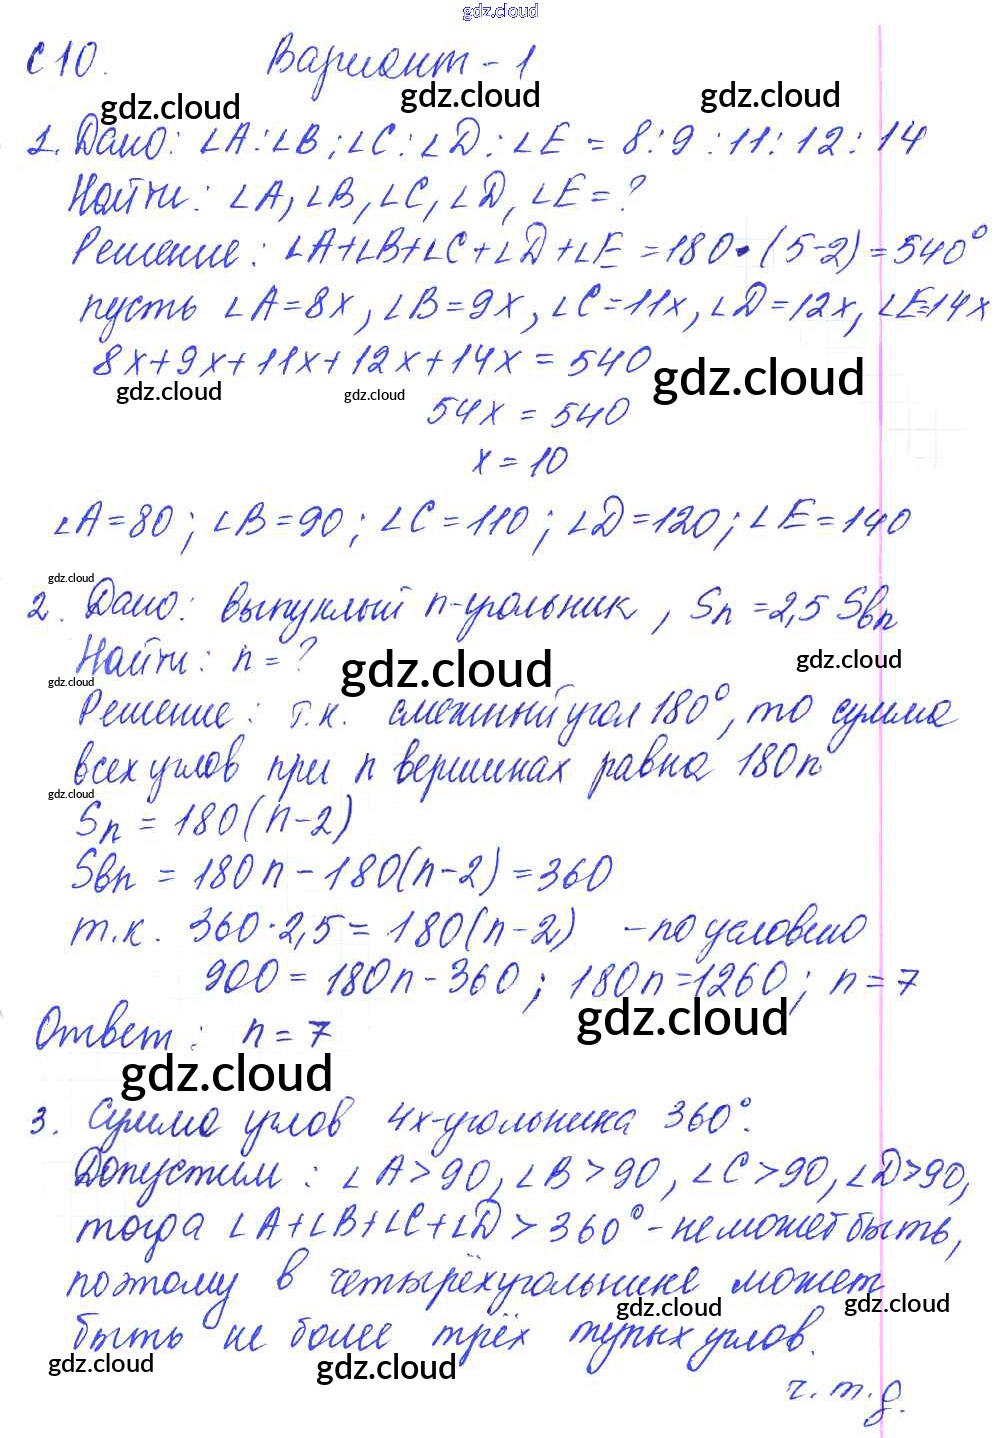 gdz.cloud
С 10. Вариант - 1
gdz.cloud gdz.cloud gdz.cloud
1. Дано: ∠A:∠B:∠C:∠D:∠E = 8:9:11:12:14
Найти: ∠A, ∠B, ∠C, ∠D, ∠E = ?
Решение: ∠A+∠B+∠C+∠D+∠E = 180•(5-2) = 540°
пусть ∠A=8x, ∠B=9x, ∠C=11x, ∠D=12x, ∠E=14x
8x+9x+11x+12x+14x = 540
gdz.cloud gdz.cloud gdz.cloud
54x = 540
x = 10
∠A=80; ∠B=90; ∠C=110; ∠D=120; ∠E=140
gdz.cloud
2. Дано: выпуклый n-угольник, Sn = 2,5 Sвn
Найти: n = ?
gdz.cloud gdz.cloud gdz.cloud
Решение: т.к. смежный угол 180°, то сумма
всех углов при n вершинах равна 180n
gdz.cloud
Sn = 180(n-2)
Sвn = 180n - 180(n-2) = 360
т.к. 360·2,5 = 180(n-2) - по условию
900 = 180n - 360; 180n = 1260; n = 7
gdz.cloud
Ответ: n = 7
gdz.cloud
3. Сумма углов 4х-угольника 360°.
Допустим: ∠A>90, ∠B>90, ∠C>90, ∠D>90,
тогда ∠A+∠B+∠C+∠D > 360° - не может быть,
поэтому в четырёхугольнике может
gdz.cloud gdz.cloud
быть не более трёх тупых углов.
gdz.cloud gdz.cloud
ч.т.д.